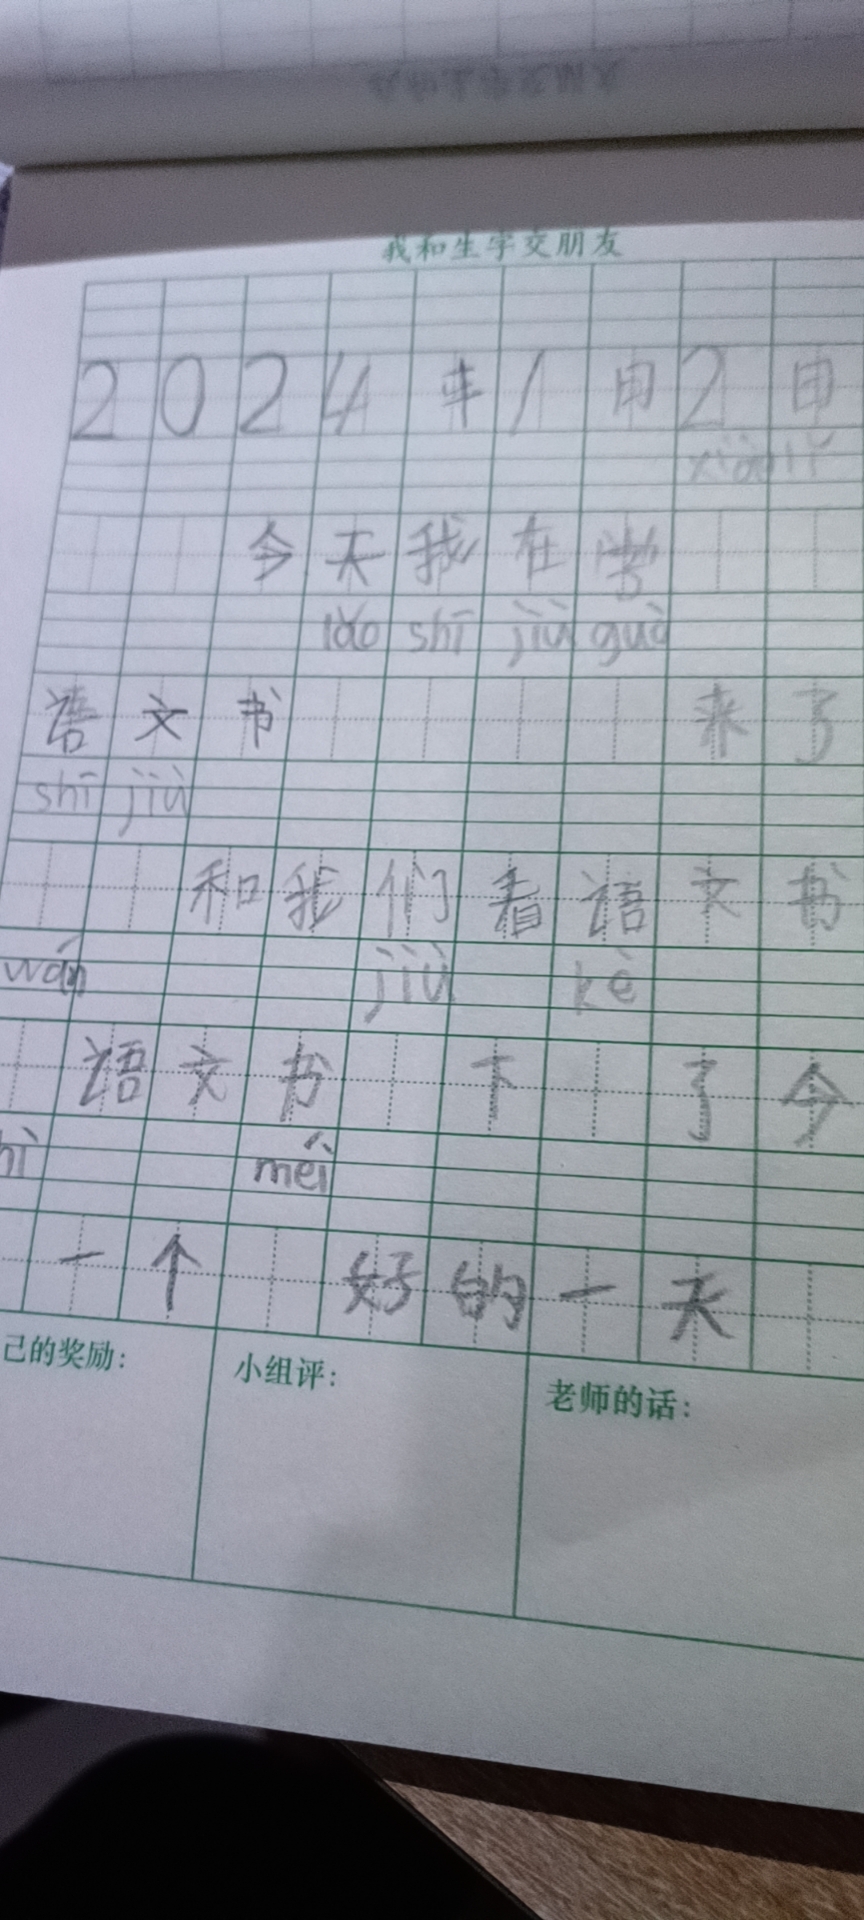 我和生字交朋友
2024年1申2申
xiào lǐ
今天我在学
lǎo shī jiù guò
语文书 来了
shī jiù
和我们看语文书
wán jiù kè
语文书 下 了今
měi
一个 好的一天
己的奖励: 小组评: 老师的话: